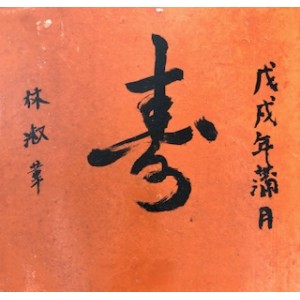 戊戌年蒲月
寿
林淑華